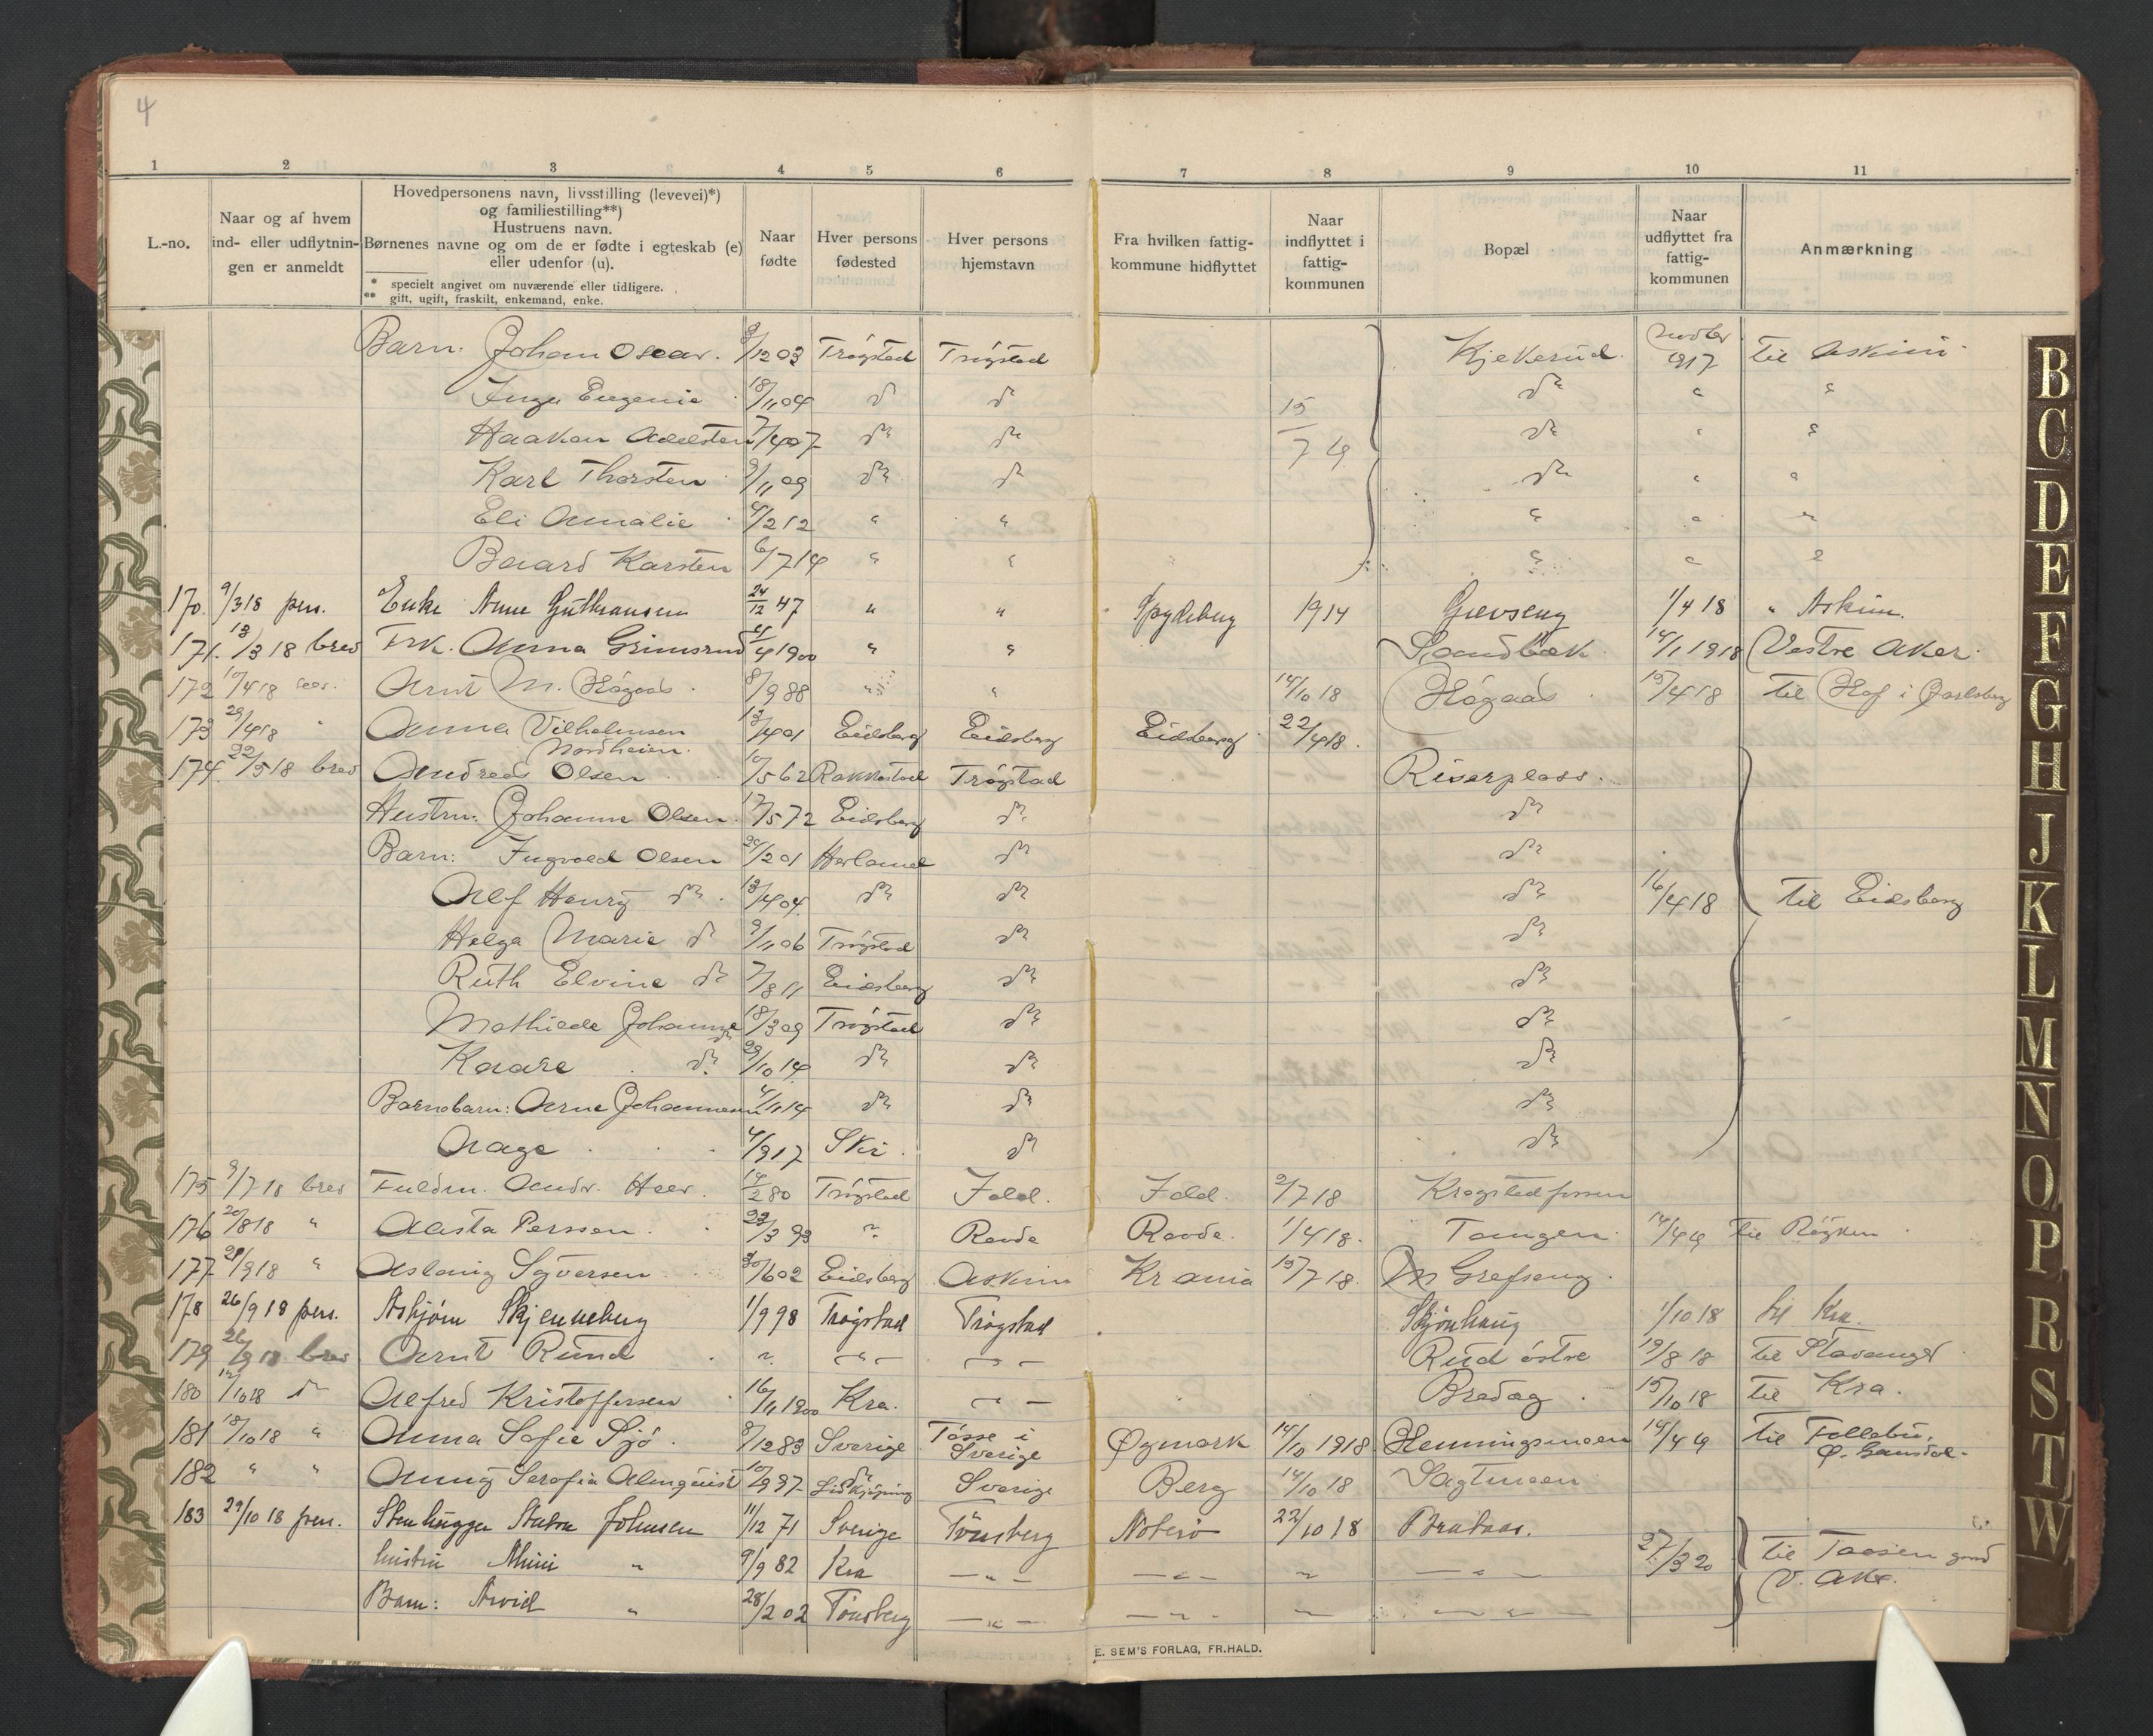 4
1 2 3 4 5 6 7 8 9 10 11
L.-no.
Naar og af hvem ind- eller udflytnin-gen er anmeldt
Hovedpersonens navn, livsstilling (levevei)*) og familiestilling**) Hustruens navn. Børnenes navne og om de er fødte i egteskab (e) eller udenfor (u).
* specielt angivet om nuværende eller tidligere.
** gift, ugift, fraskilt, enkemand, enke.
Naar fødte
Hver persons fødested
Hver persons hjemstavn
Fra hvilken fattig-kommune hidflyttet
Naar indflyttet i fattig-kommunen
Bopæl
Naar udflyttet fra fattig-kommunen
Anmærkning
Barn: Johan Oscar. 9/12 03 Trøgstad Trøgstad Kjekerud 1917 til Askim
Inga Eugenie 18/1 04 do do 15/7 19 do " "
Haakon Adelsten 7/4 07 do do do " "
Karl Thorsten 9/11 09 do do do " "
Eli Amalie 4/2 12 " " " " "
Baard Karsten 6/7 14 " " " " "
170. 9/3 18 pers. Enke Anne Gulbransen 24/12 47 " " Spydeberg 1914 Grevseng 1/4 18 " Askim.
171. 13/3 18 brev Frk. Anna Grimsrud 25/4 1900 " " Sandbæk 14/1 1918 Vestre Aker.
172 10/4 18 Arnt M. Høgaas 8/9 88 " " 14/10 18 Høgaas 15/4 18 til Hof i Jarlsberg
173 29/4 18 " Anna Vilhelmsen Nordheim. 13/4 01 Eidsberg Eidsberg Eidsberg 22/4 18.
174 22/5 18 brev Andreas Olsen 10/5 62 Rakkestad Trøgstad Riserplass.
Hustru: Johanne Olsen 17/5 72 Eidsberg do do
Barn: Ingvald Olsen 20/2 01 Hærland do do
Alf Henry do 13/4 04 do do do 16/4 18 til Eidsberg
Helga Marie do 9/1 06 Trøgstad do do
Ruth Elvine do 7/8 11 Eidsberg do do
Mathilde Johanne do 18/3 09 Trøgstad do do
Kaare do 29/10 14 do do do
Barnebarn: Arne Johannesen 4/1 14 do do do
Aage 4/9 17 Ski do do
175 9/7 18 brev Fuldm. Andr. Heer. 14/2 80 Trøgstad Idd. Idd. 2/7 18 Krogstadfossen
176 20/8 18 " Alasta Perssen. 22/3 93 " Raade Raade. 1/4 18. Tangen 14/4 19 til Røyken
177 28/9 18 " Aslaug Syversen 30/6 02 Eidsberg Askim Krania 15/7 18. Grefseng.
178 26/9 18 pers. Asbjørn Skjenneberg 1/9 98 Trøgstad Trøgstad Skjønhaug 1/10 18 til Kra.
179 26/9 18 brev Arnt Rund " - " - - " - Rud østre 19/8 18 til Stavanger
180 12/10 18 do Alfred Kristoffersen 16/11 1900 Kra. - " - Bredag 15/10 18 til Kra.
181 18/10 18 " Anna Sofie Sjö. 8/12 83 Sverige Tösse i Sverige Øymark 14/10 1918 Henningsmoen 14/4 19 til Follebu, Ø. Gausdal.
182 " " Anny Serafia Almquist 10/9 97 do Lidkjøping Sverige Berg 14/10 18 Sagtmoen
183 29/10 18 pers. Stenhugger Anton Johnsen 11/12 71 Sverige Tönsberg Noterö 22/10 18 Brataas.
hustru Mimi " 9/9 82 Kra - " - - " - " - " - 27/3 20 til Taasen gaard V. Aker.
Barn: Arvid " 28/2 02 Tönsberg - " - - " - " - " -
E. SEM'S FORLAG, FR.HALD.
B
C
D
E
F
G
H
J
K
L
M
N
O
P
R
S
T
W